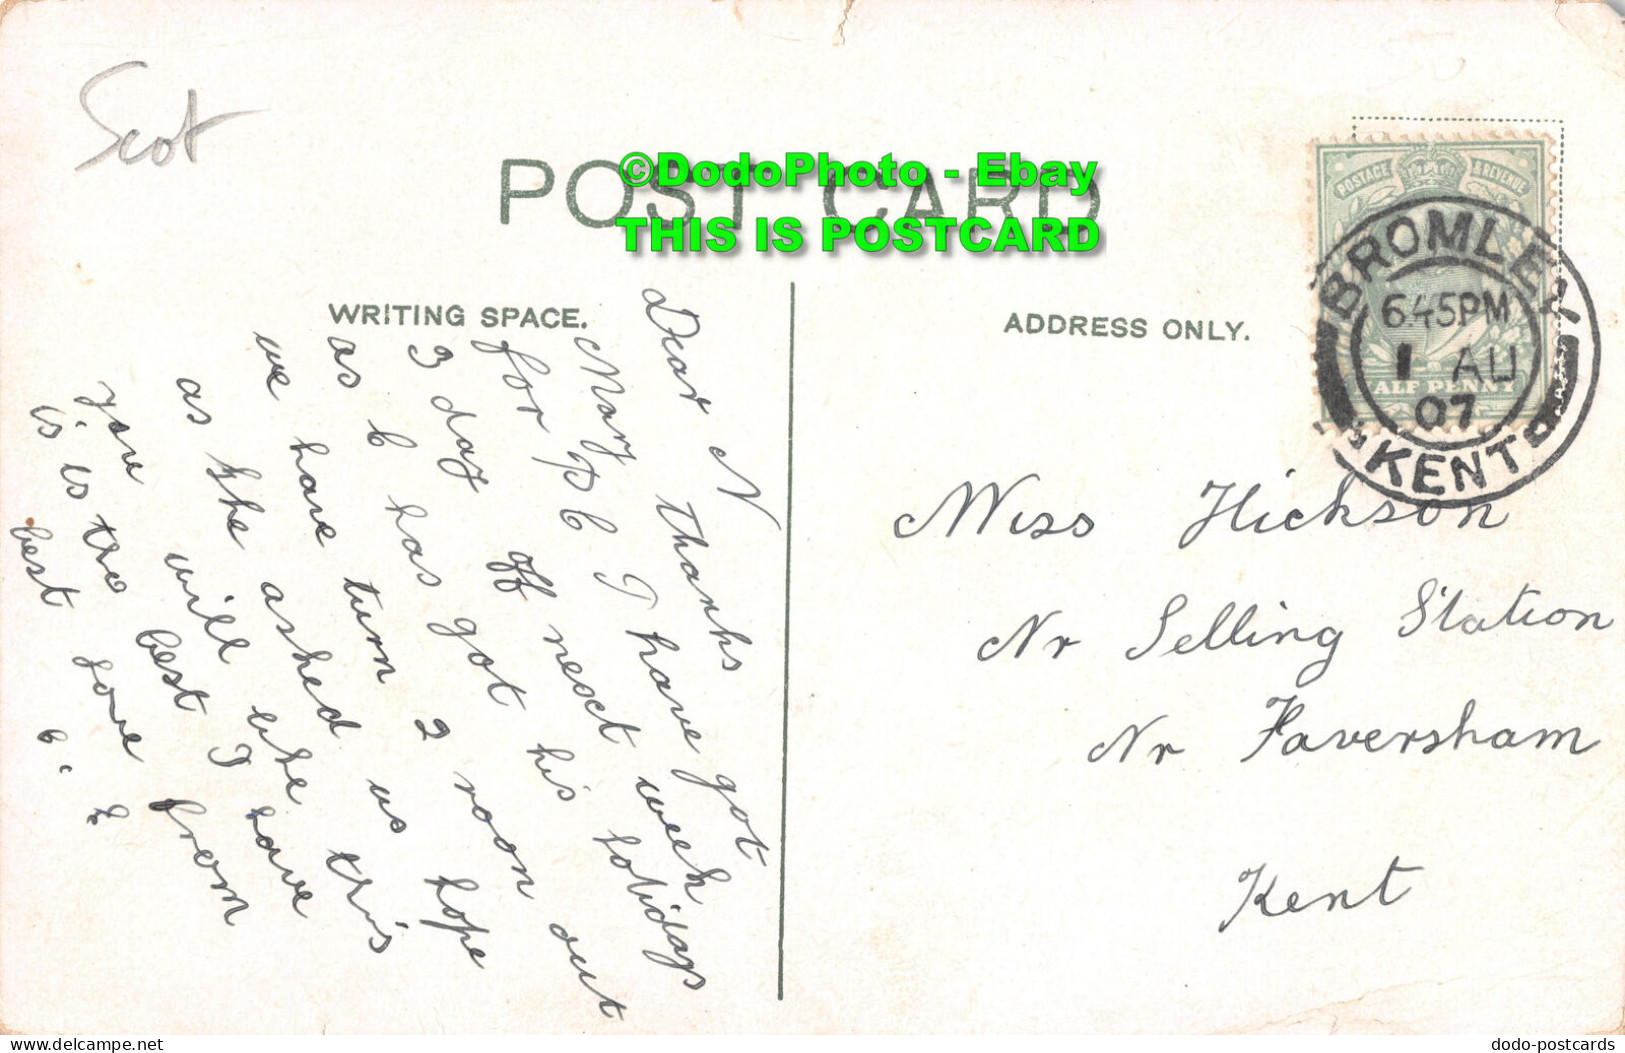 Scot
POST CARD
©DodoPhoto - Ebay
THIS IS POSTCARD
WRITING SPACE.
ADDRESS ONLY.
POSTAGE & REVENUE
HALF PENNY
BROMLEY
6.45PM
1 AU
07
KENT
Dear N
Mary Thanks
for P C I have got
3 day off next week
as C has got his holidays
we have turn 2 room out
as she asked us hope
you will like this
is is the best I have
best love from
Miss Hickson
Nr Selling Station
Nr Faversham
Kent
delcampe.net
dodo-postcards